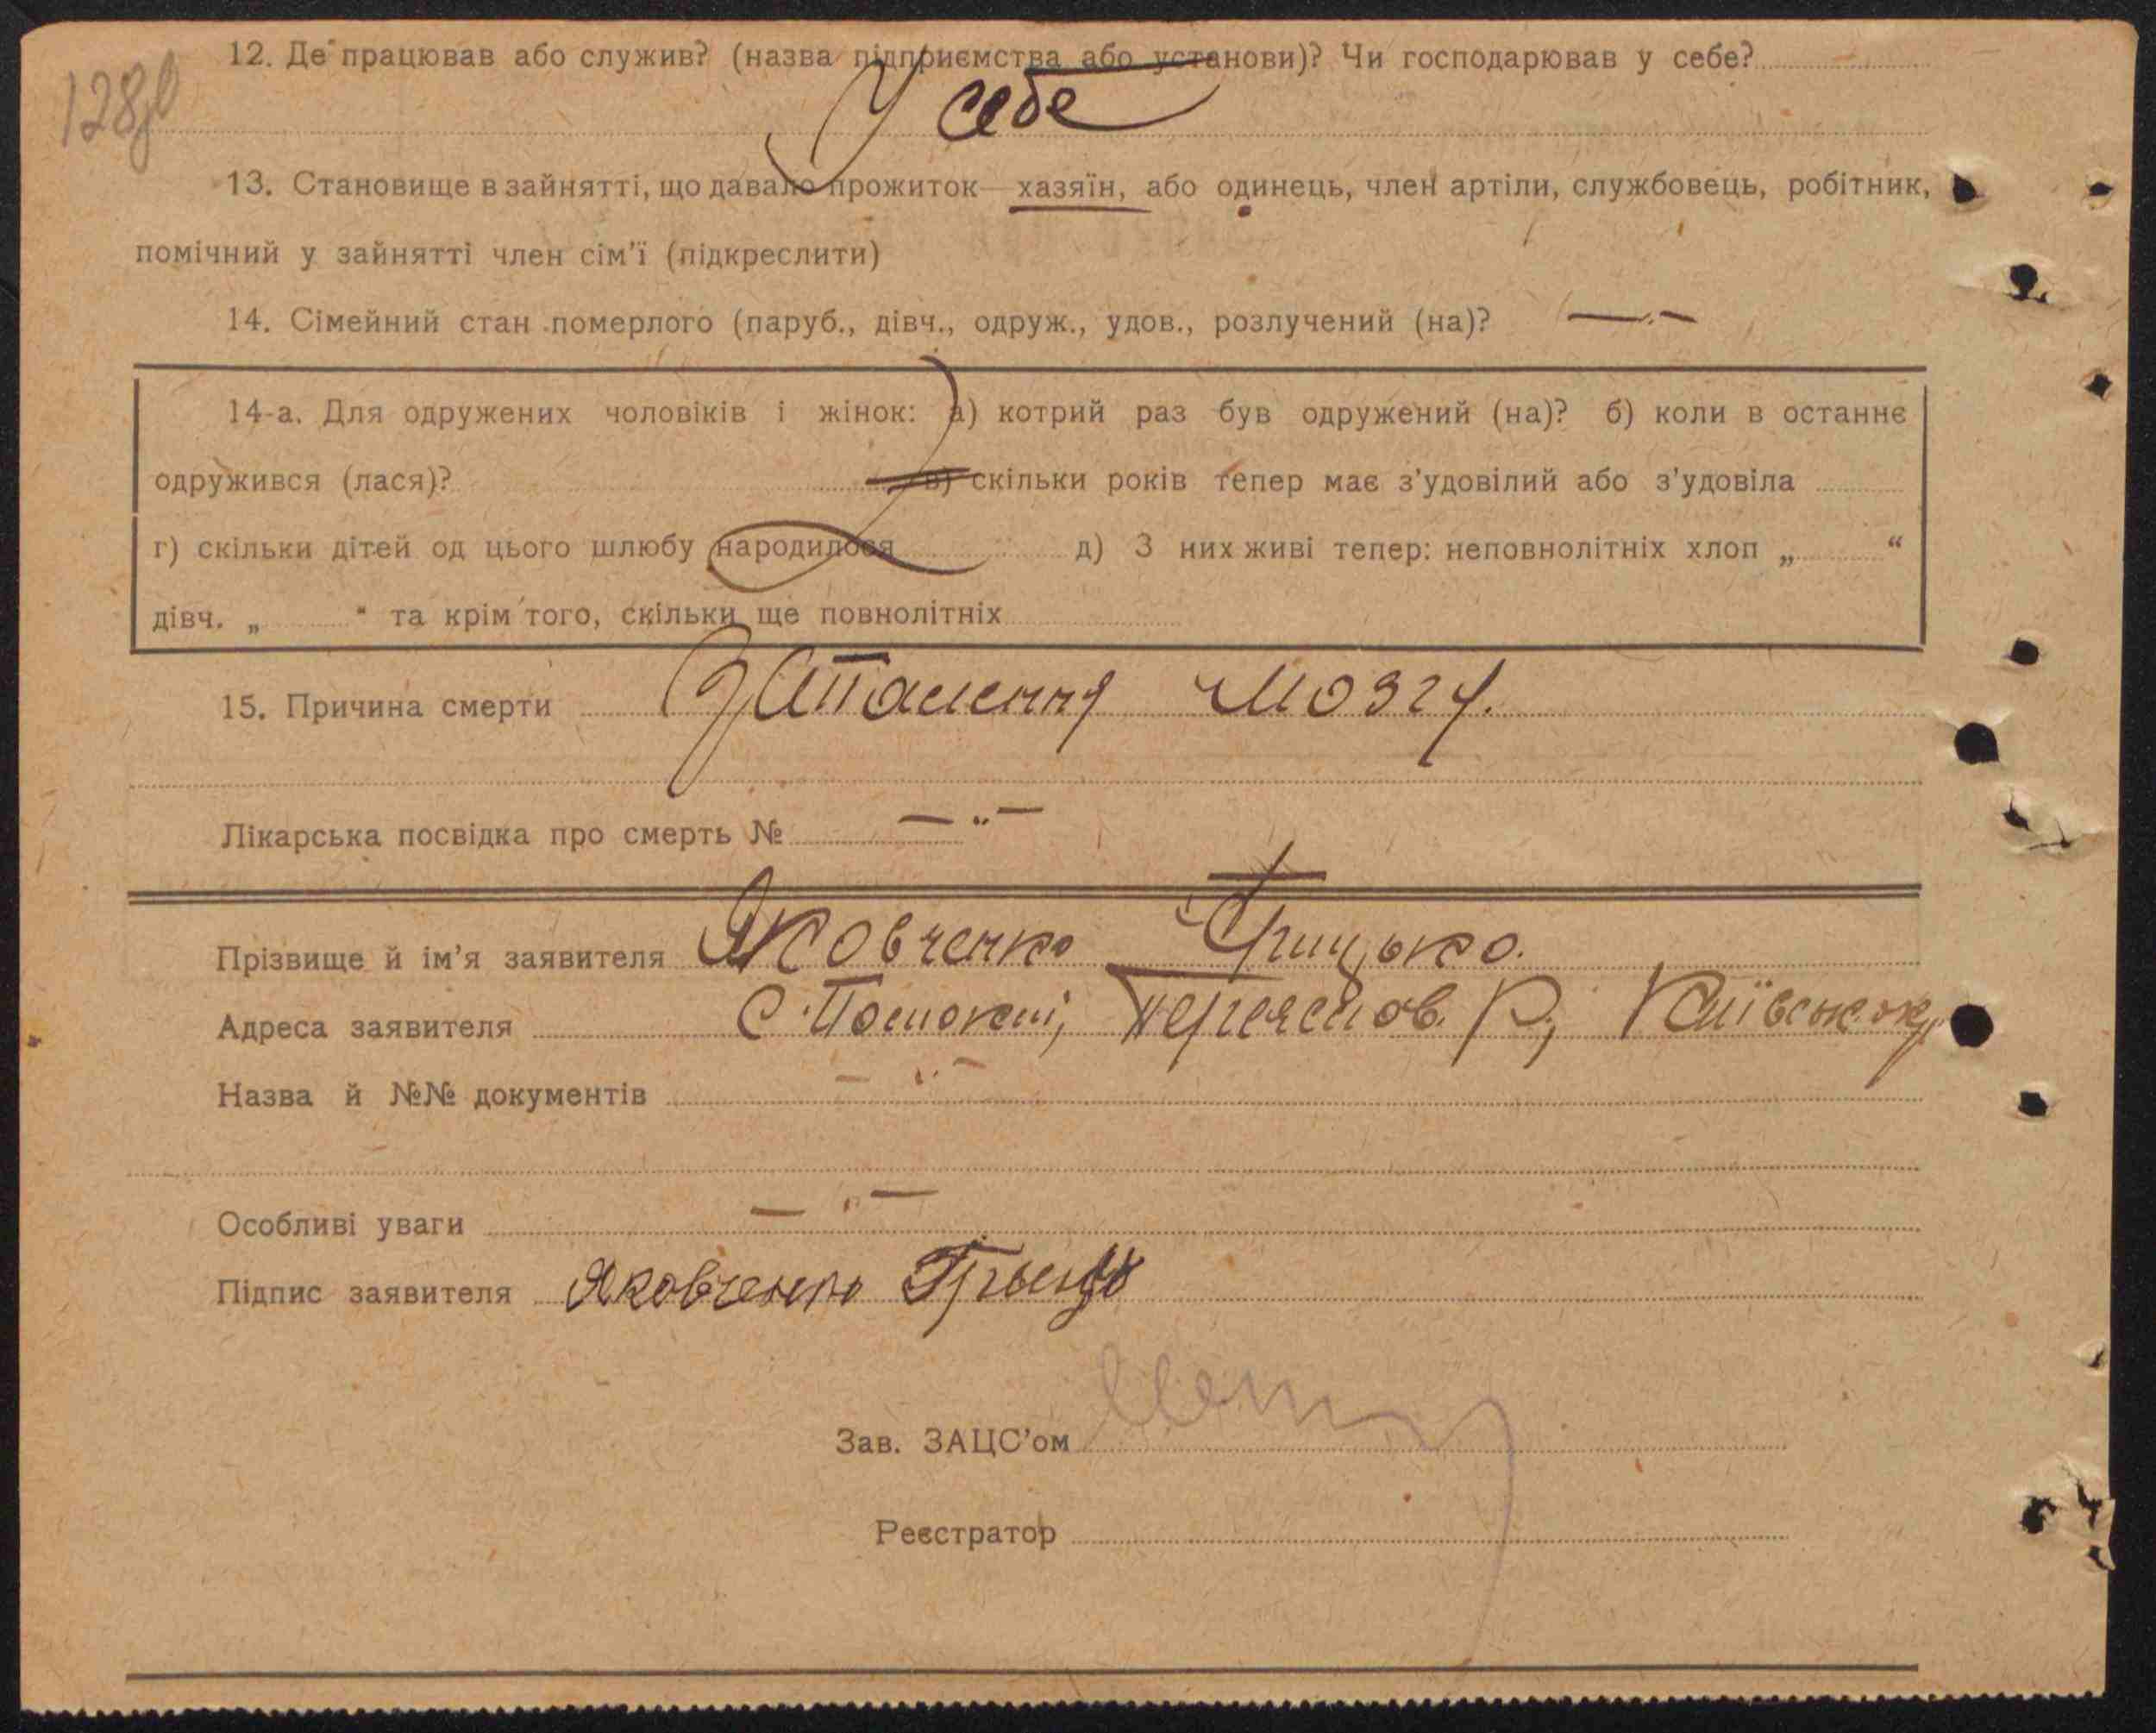 12. Де працював або служив? (назва підприємства або установи)? Чи господарював у себе?
У себе
13. Становище в зайнятті, що давало прожиток хазяїн, або одинець, член артіли, службовець, робітник,
помічний у зайнятті член сім'ї (підкреслити)
14. Сімейний стан померлого (паруб., дівч., одруж., удов., розлучений (на)? — „ —
14-а. Для одружених чоловіків і жінок: а) котрий раз був одружений (на)? б) коли в останнє
одружився (лася)? в) скільки років тепер має з'удовілий або з'удовіла
г) скільки дітей од цього шлюбу народилося д) З них живі тепер: неповнолітніх хлоп „ “
дівч. „ “ та крім того, скільки ще повнолітніх
15. Причина смерти Запалення мозгу.
Лікарська посвідка про смерть № — „ —
Прізвище й ім'я заявителя Яковченко Грицько.
Адреса заявителя С. Переяслов. Р, Київськ
Назва й №№ документів — „ —
Особливі уваги — „ —
Підпис заявителя Яковченко Грыцько
Зав. ЗАЦС'ом
Реєстратор